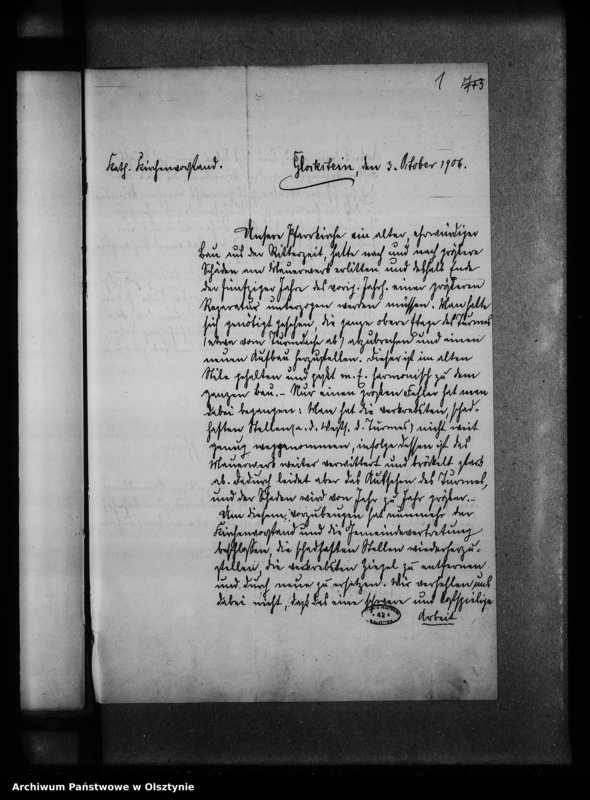 1
Kath. Kirchenvorstand.
Glockstein, den 3. Oktober 1906.
Unsere Pfarrkirche ein alter, ehrwürdiger
Bau aus der Ritterzeit, hatte nach und nach größere
Schäden am Mauerwerk erlitten und deshalb Ende
der fünfziger Jahre des vorig. Jahrh. einer größeren
Reparatur unterzogen werden müssen. Man hatte
sich genötigt gesehen, die ganze obere Etage des Turmes
(etwa vom Turmdache ab) abzubrechen und einen
neuen Aufbau herzustellen. Dieser ist im alten
Stile gehalten und paßt m. E. harmonisch zu dem
ganzen Bau. – Nur einen großen Fehler hat man
dabei begangen: Man hat die verwebsten, schad-
haften Stellen (a. d. Wests. d. Turmes) nicht weit
genug weggenommen, infolge dessen ist das
Mauerwerk weiter verwittert und bröckelt stark
ab. Dadurch leidet aber das Aussehen des Turmes,
und der Schaden wird von Jahr zu Jahr größer. –
Um diesem vorzubeugen hat nunmehr der
Kirchenvorstand und die Gemeindevertretung
beschlossen, die schadhaften Stellen wiederherzu-
stellen, die verwebsten Ziegel zu entfernen
und durch neue zu ersetzen. Wir verhehlen uns
dabei nicht, daß das eine schwere und kostspielige
Arbeit
42
Archiwum Państwowe w Olsztynie